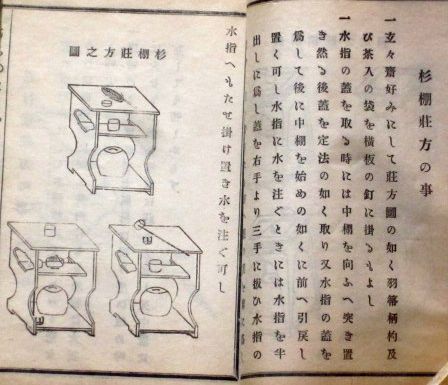 杉棚莊方の事
一玄々齋好みにして莊方圖の如く羽箒柄杓及
び茶入の袋を橫板の釘に掛るもよし
一水指の蓋を取る時には中棚を向ふへ突き置
き然る後蓋を定法の如く取り又水指の蓋を
爲して後に中棚を始めの如くに前へ引戾し
置く可し水指に水を注ぐときには水指を半
出しに爲し蓋を右手より三手に扱ひ水指の
水指へもたせ掛け置き水を注ぐ可し
杉棚莊方之圖